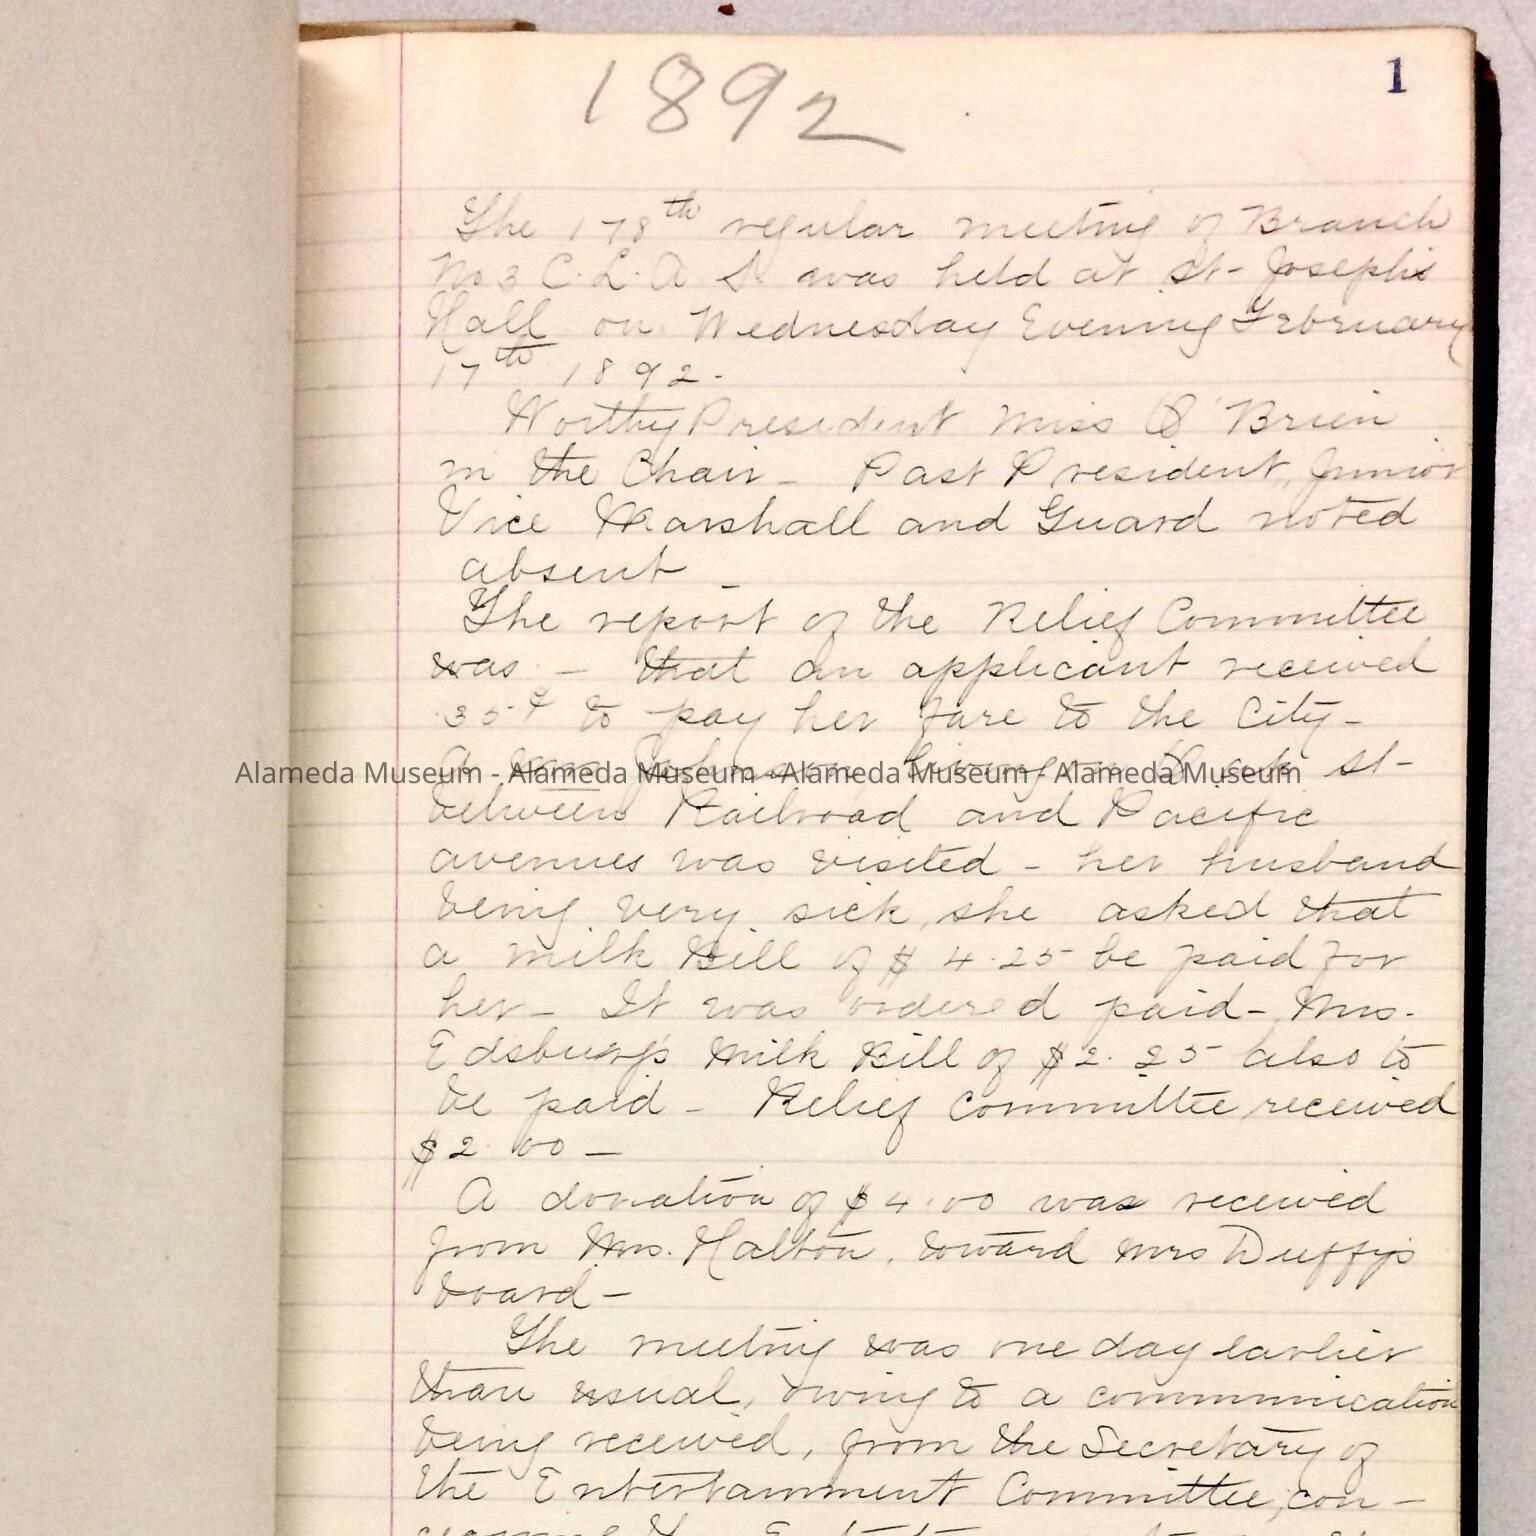 1892
1
The 178th regular meeting of Branch
No 3 C. L. A. S. was held at St- Joseph's
Hall on Wednesday Evening February
17th 1892-
Worthy President Miss O'Brien
in the Chair - Past President, Junior
Vice Marshall and Guard noted
absent -
The report of the Relief Committee
was - that an applicant received
.35¢ to pay her fare to the City-
A Mrs Johnson living on Park St-
Alameda Museum - Alameda Museum - Alameda Museum - Alameda Museum
between Railroad and Pacific
avenues was visited - her husband
being very sick, she asked that
a milk Bill of $4.25 be paid for
her - It was ordered paid - Mrs.
Edsbury's Milk Bill of $2.25 also to
be paid - Relief Committee received
$2.00 -
A donation of $4.00 was received
from Mrs. Halton, toward Mrs Duffy's
board -
The meeting was one day earlier
than usual, owing to a communication
being received, from the Secretary of
the Entertainment Committee, con-